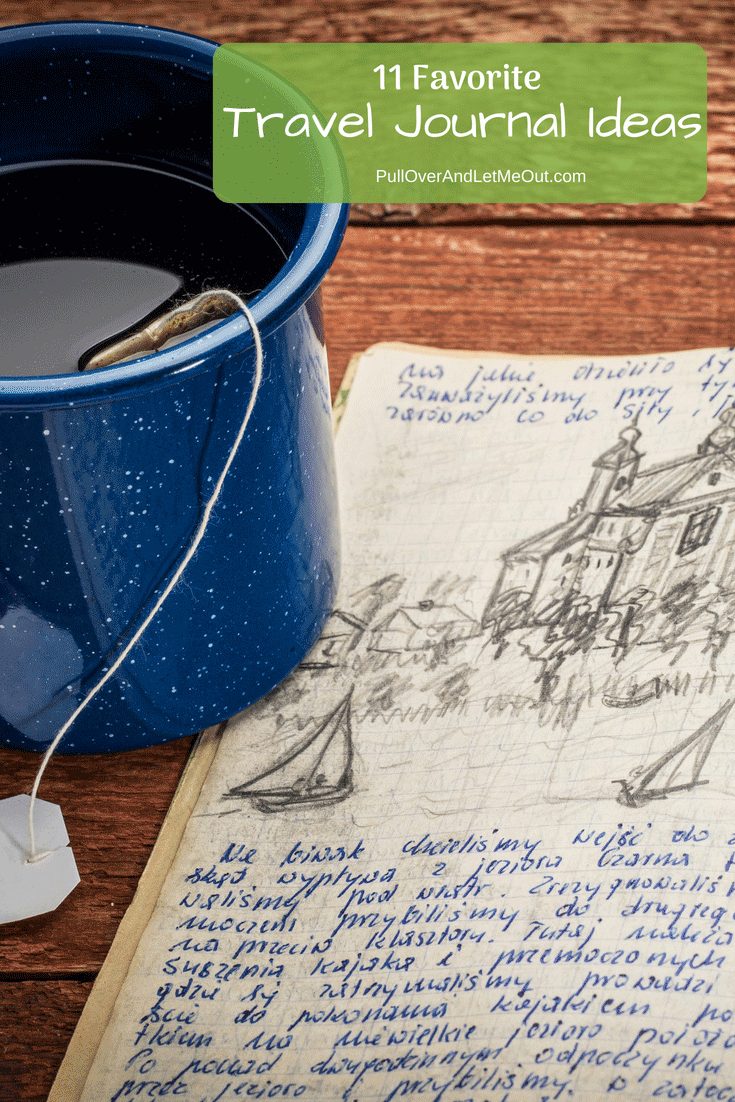 11 Favorite
Travel Journal Ideas
PullOverAndLetMeOut.com
Na jakie
zauważyliśmy przy
zarówno co do siły,
Na biwak chcieliśmy wejść do
skąd wypływa z jeziora Czarna
waliśmy pod wiatr. Zrezygnowaliś
moczem przybiliśmy do drugieg
na przeciw klasztoru. Tutaj
suszenia kajaka i przemoczonych
gdzie się zatrzymaliśmy prowadzi
do pokonania kajakiem po
na niewielkie jezioro położo
Po ponad dwugodzinnym odpoczynku
przez jezioro i przybiliśmy. w zatoce